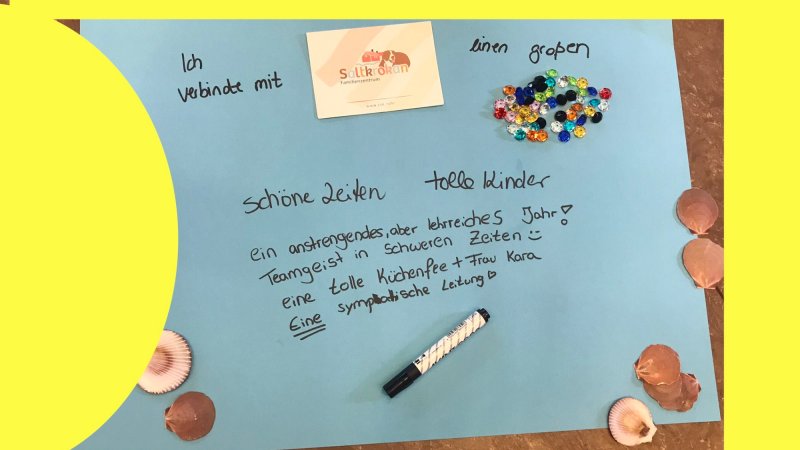 Ich
verbinde mit
einen großen
Saltkrokan
Familienzentrum
schöne Zeiten
tolle Kinder
ein anstrengendes, aber lehrreiches Jahr!
Teamgeist in schweren Zeiten
eine tolle Küchenfee + Frau Kara
Eine sympathische Leitung